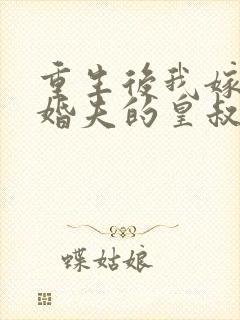 重生後我嫁
婚夫的皇叔
蝶姑娘